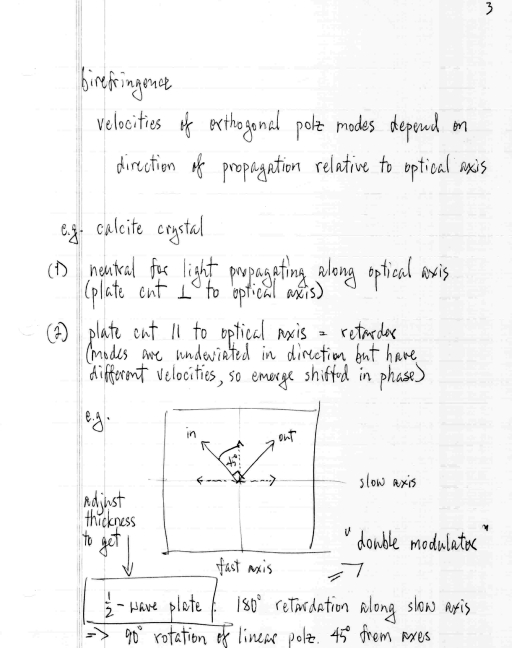 3
birefringence
velocities of orthogonal polz modes depend on
direction of propagation relative to optical axis
e.g. calcite crystal
(1) neutral for light propagating along optical axis
(plate cut ⊥ to optical axis)
(2) plate cut || to optical axis = retarder
(modes are undeviated in direction but have
different velocities, so emerge shifted in phase)
e.g.
in
out
45°
slow axis
adjust
thickness
to get
"double modulator"
fast axis
½-wave plate : 180° retardation along slow axis
=> 90° rotation of linear polz. 45° from axes